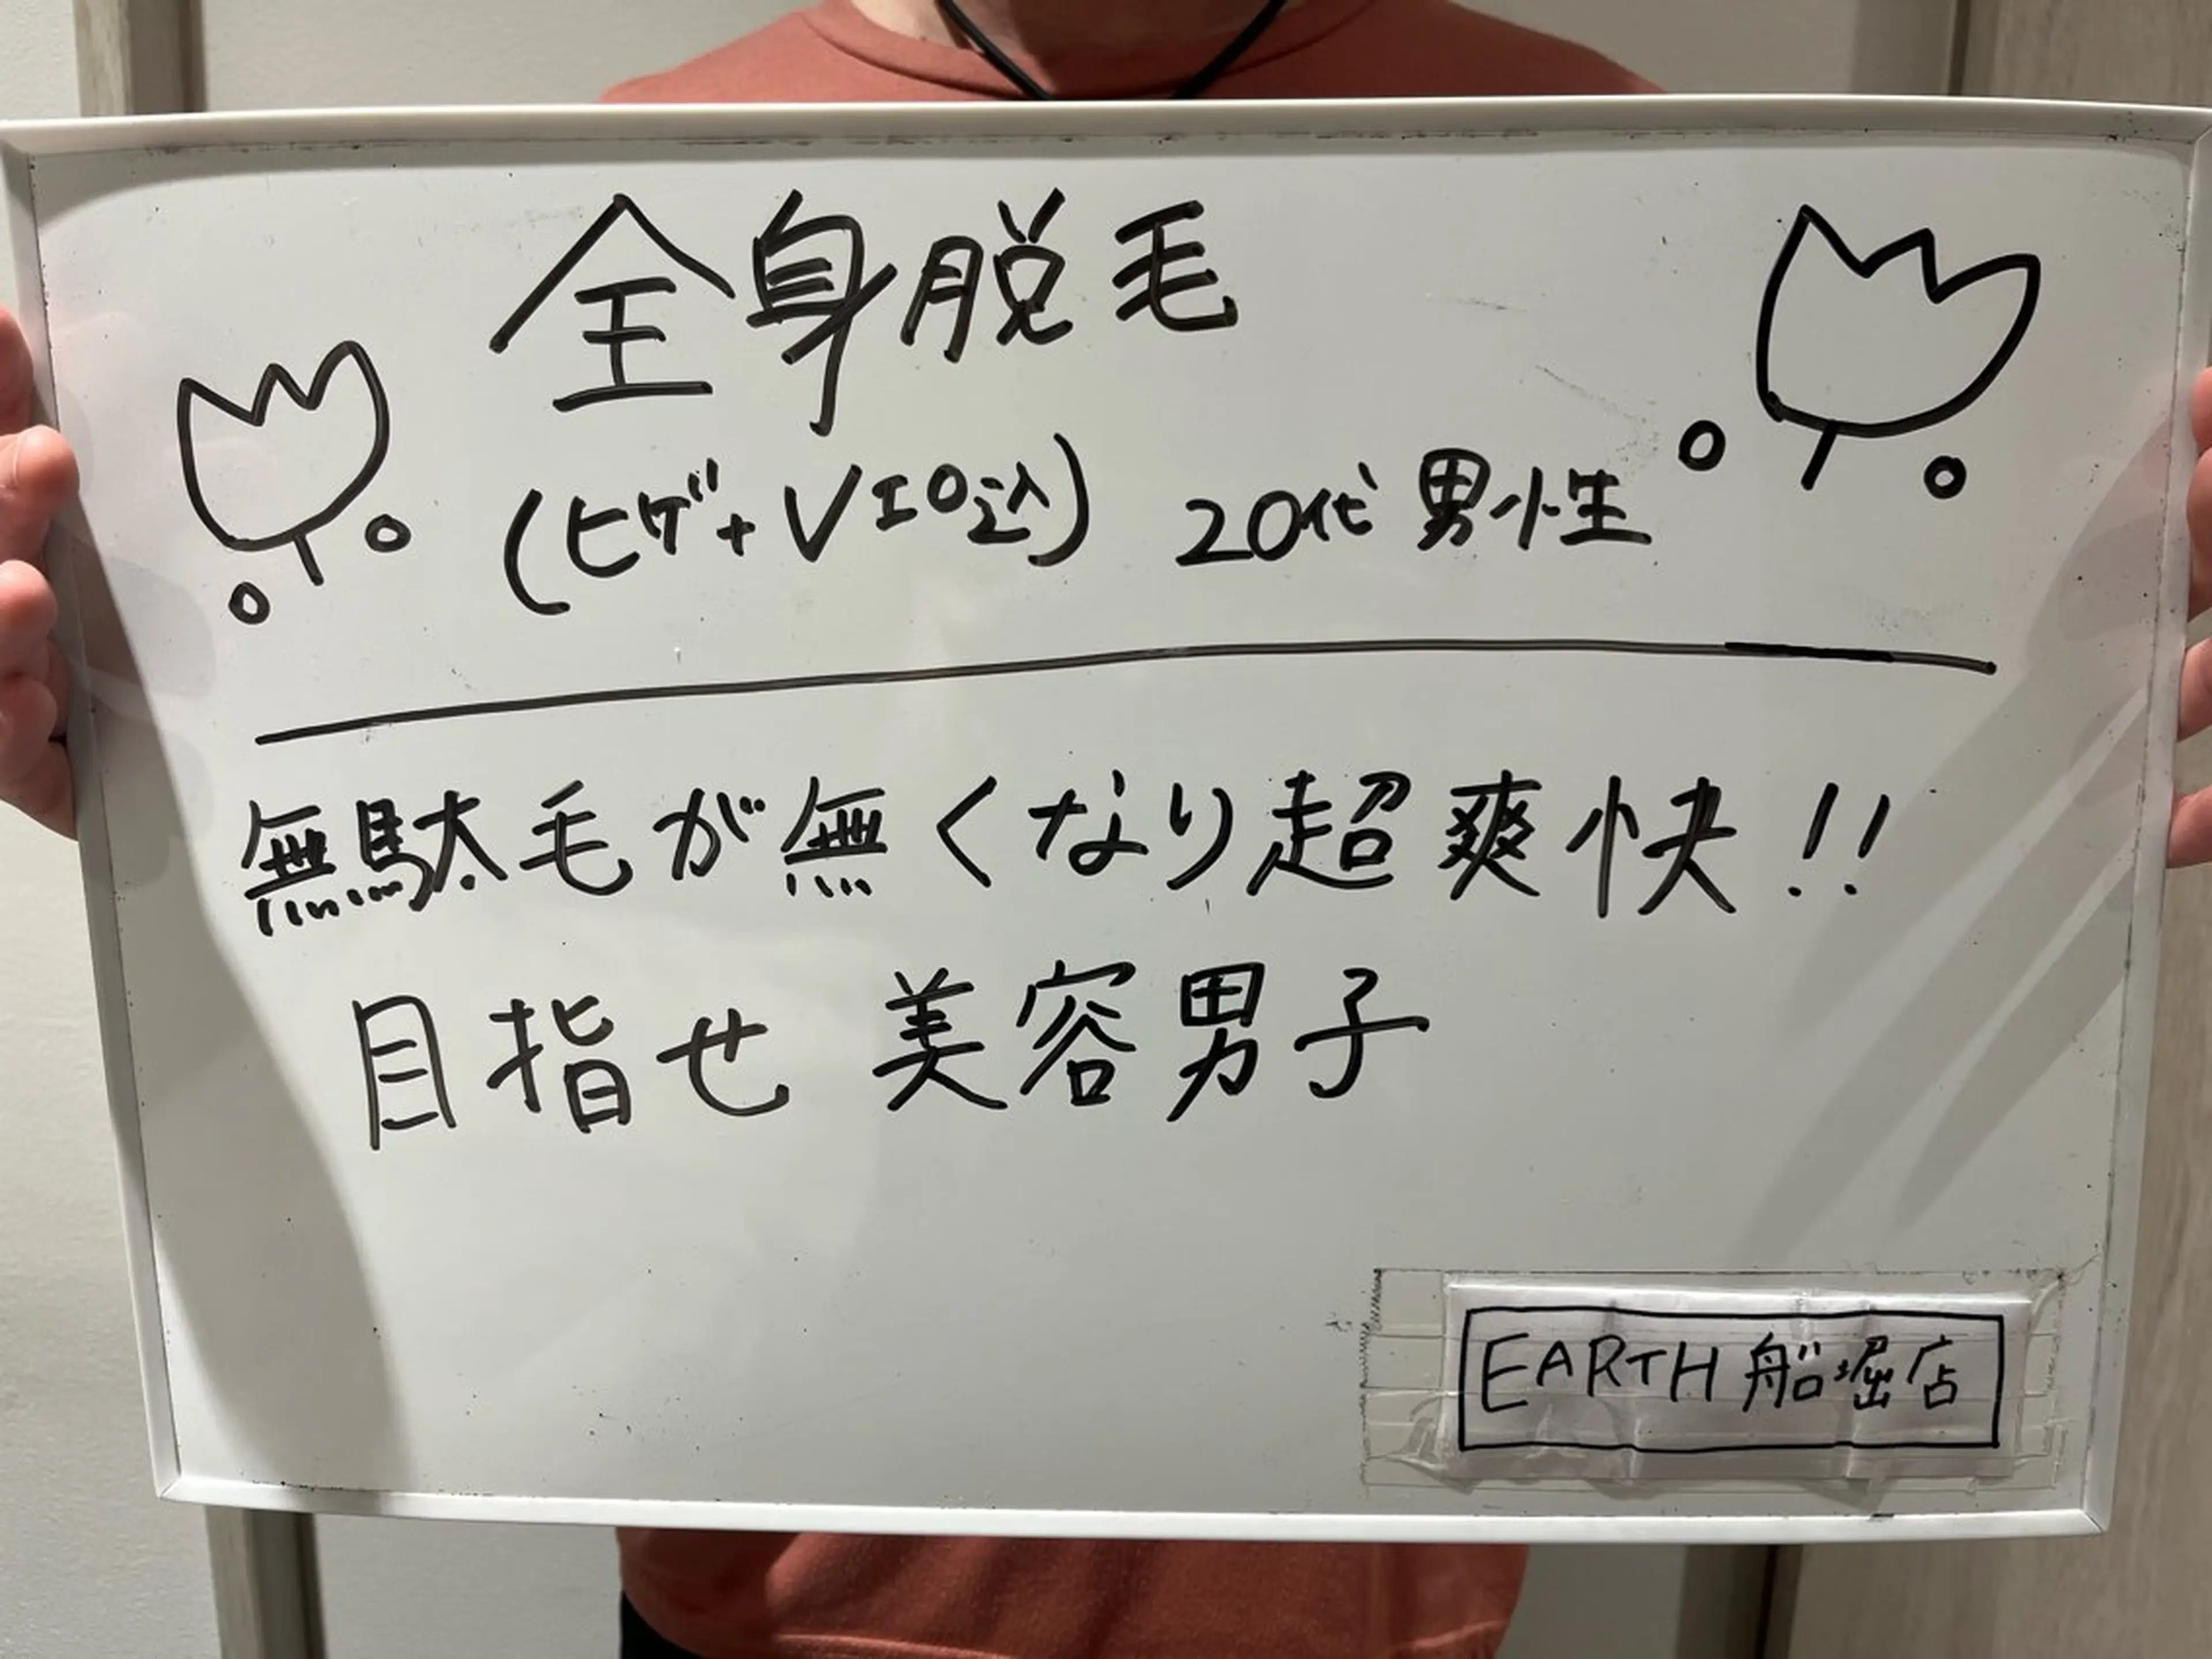 全身脱毛
(ヒゲ+VIO込) 20代男性
無駄毛が無くなり超爽快!!
目指せ 美容男子
EARTH 船堀店